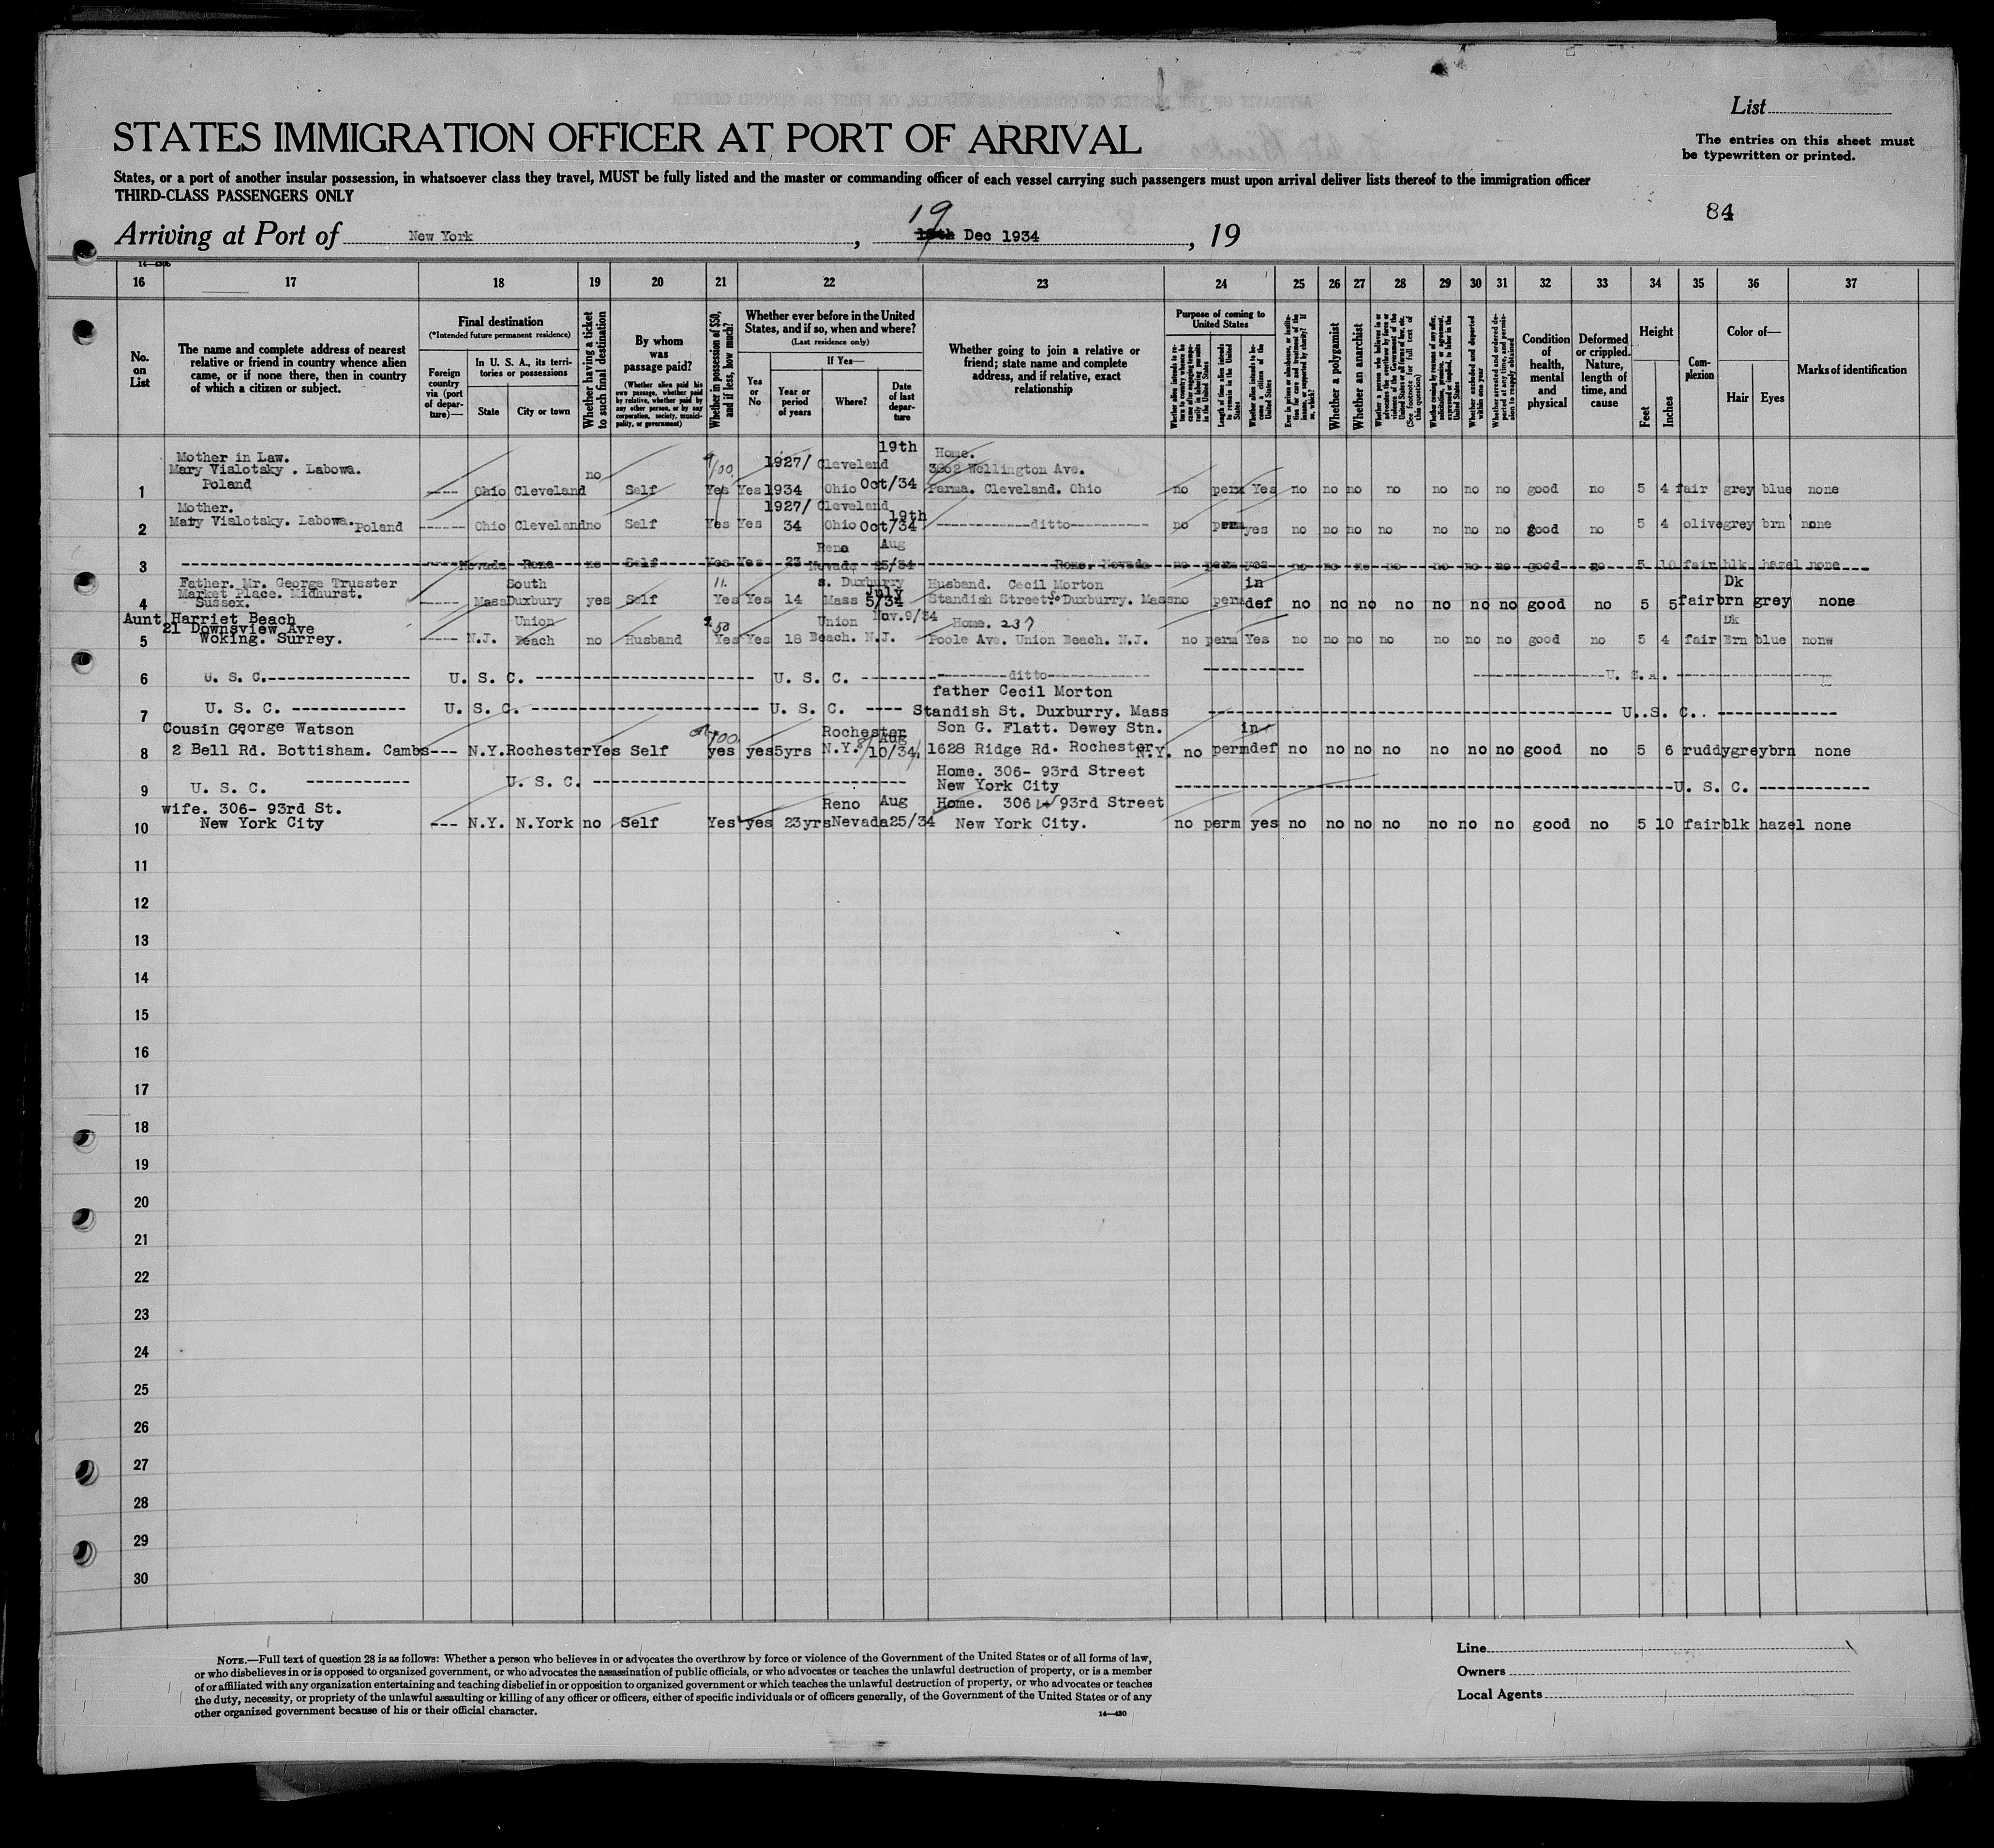 List
STATES IMMIGRATION OFFICER AT PORT OF ARRIVAL
The entries on this sheet must
be typewritten or printed.
States, or a port of another insular possession, in whatsoever class they travel, MUST be fully listed and the master or commanding officer of each vessel carrying such passengers must upon arrival deliver lists thereof to the immigration officer
THIRD-CLASS PASSENGERS ONLY
84
19
Arriving at Port of New York, Dec 1934, 19
16 17 18 19 20 21 22 23 24 25 26 27 28 29 30 31 32 33 34 35 36 37
No. on List
The name and complete address of nearest relative or friend in country whence alien came, or if none there, then in country of which a citizen or subject.
Final destination
(*Intended future permanent residence)
Foreign country via (port of departure)—
In U. S. A., its territories or possessions
State
City or town
Whether having a ticket to such final destination
By whom was passage paid?
(Whether alien paid his own passage, whether paid by relative, whether paid by any other person, or by any corporation, society, municipality, or government)
Whether in possession of $50, and if less, how much?
Whether ever before in the United States, and if so, when and where?
(Last residence only)
Yes or No
If Yes—
Year or period of years
Where?
Date of last departure
Whether going to join a relative or friend; state name and complete address, and if relative, exact relationship
Purpose of coming to United States
Length of time alien intends to remain in the United States
Whether alien intends to become a citizen of the United States
Whether a polygamist
Whether an anarchist
Condition of health, mental and physical
Deformed or crippled. Nature, length of time, and cause
Height
Feet
Inches
Complexion
Color of—
Hair
Eyes
Marks of identification
Mother in Law. 1927/ Cleveland 19th Home.
Mary Vislotsky . Labowa. 3262 Wellington Ave.
Poland
1 ---- Ohio Cleveland no Self Yes Yes 1934 Ohio Oct/34 Parma. Cleveland. Ohio no perm Yes no no no no no no no good no 5 4 fair grey blue none
Mother. 1927/ Cleveland 19th
2 Mary Vislotsky. Labowa. Poland ----- Ohio Cleveland no Self Yes Yes 34 Ohio Oct/34 ------ditto------ no perm yes no no no no no no no good no 5 4 olive grey brn none
Reno Aug
3 ------ Nevada Reno no Self Yes Yes 23 Nevada 25/34 ------ Reno. Nevada no perm yes no no no no no no no good no 5 10 fair blk hazel none
Father. Mr. George Trusster South s. Duxburry Husband. Cecil Morton in Dk
Market Place. Midhurst. July
4 Sussex. ---- Mass Duxbury yes Self Yes Yes 14 Mass 5/34 Standish Street. So Duxburry. Mass no perm def no no no no no no no good no 5 5 fair brn grey none
Aunt Harriet Beach Union Union Nov.9/34 Home. 237 Dk
21 Downsview Ave 50
5 Woking. Surrey. ---- N.J. Beach no Husband Yes Yes 18 Beach. N.J. Poole Ave. Union Beach. N.J. no perm Yes no no no no no no no good no 5 4 fair Brn blue nonw
6 U. S. C.------ U. S. C. ------ U. S. C. ------ditto------ U. S. A. ------
father Cecil Morton
7 U. S. C. ------ U. S. C. ------ U. S. C. ---- Standish St. Duxburry. Mass ------ U..S. C.. ------
Cousin George Watson 100 Rochester Aug Son G. Flatt. Dewey Stn. in
8 2 Bell Rd. Bottisham. Cambs --- N.Y. Rochester Yes Self yes yes 5yrs N.Y. 10/34 1628 Ridge Rd. Rochester N.Y. no perm def no no no no no no no good no 5 6 ruddy grey brn none
Home. 306- 93rd Street
9 U. S. C. ------ U. S. C. ------ New York City ------ U. S. C. ------
wife. 306- 93rd St. Reno Aug Home. 306 W 93rd Street
10 New York City --- N.Y. N.York no Self Yes yes 23yrs Nevada 25/34 New York City. no perm yes no no no no no no no good no 5 10 fair blk hazel none
11
12
13
14
15
16
17
18
19
20
21
22
23
24
25
26
27
28
29
30
NOTE.—Full text of question 28 is as follows: Whether a person who believes in or advocates the overthrow by force or violence of the Government of the United States or of all forms of law,
or who disbelieves in or is opposed to organized government, or who advocates the assassination of public officials, or who advocates or teaches the unlawful destruction of property, or is a member
of or affiliated with any organization entertaining and teaching disbelief in or opposition to organized government or which teaches the unlawful destruction of property, or who advocates or teaches
the duty, necessity, or propriety of the unlawful assaulting or killing of any officer or officers, either of specific individuals or of officers generally, of the Government of the United States or of any
other organized government because of his or their official character.
14—430
Line
Owners
Local Agents